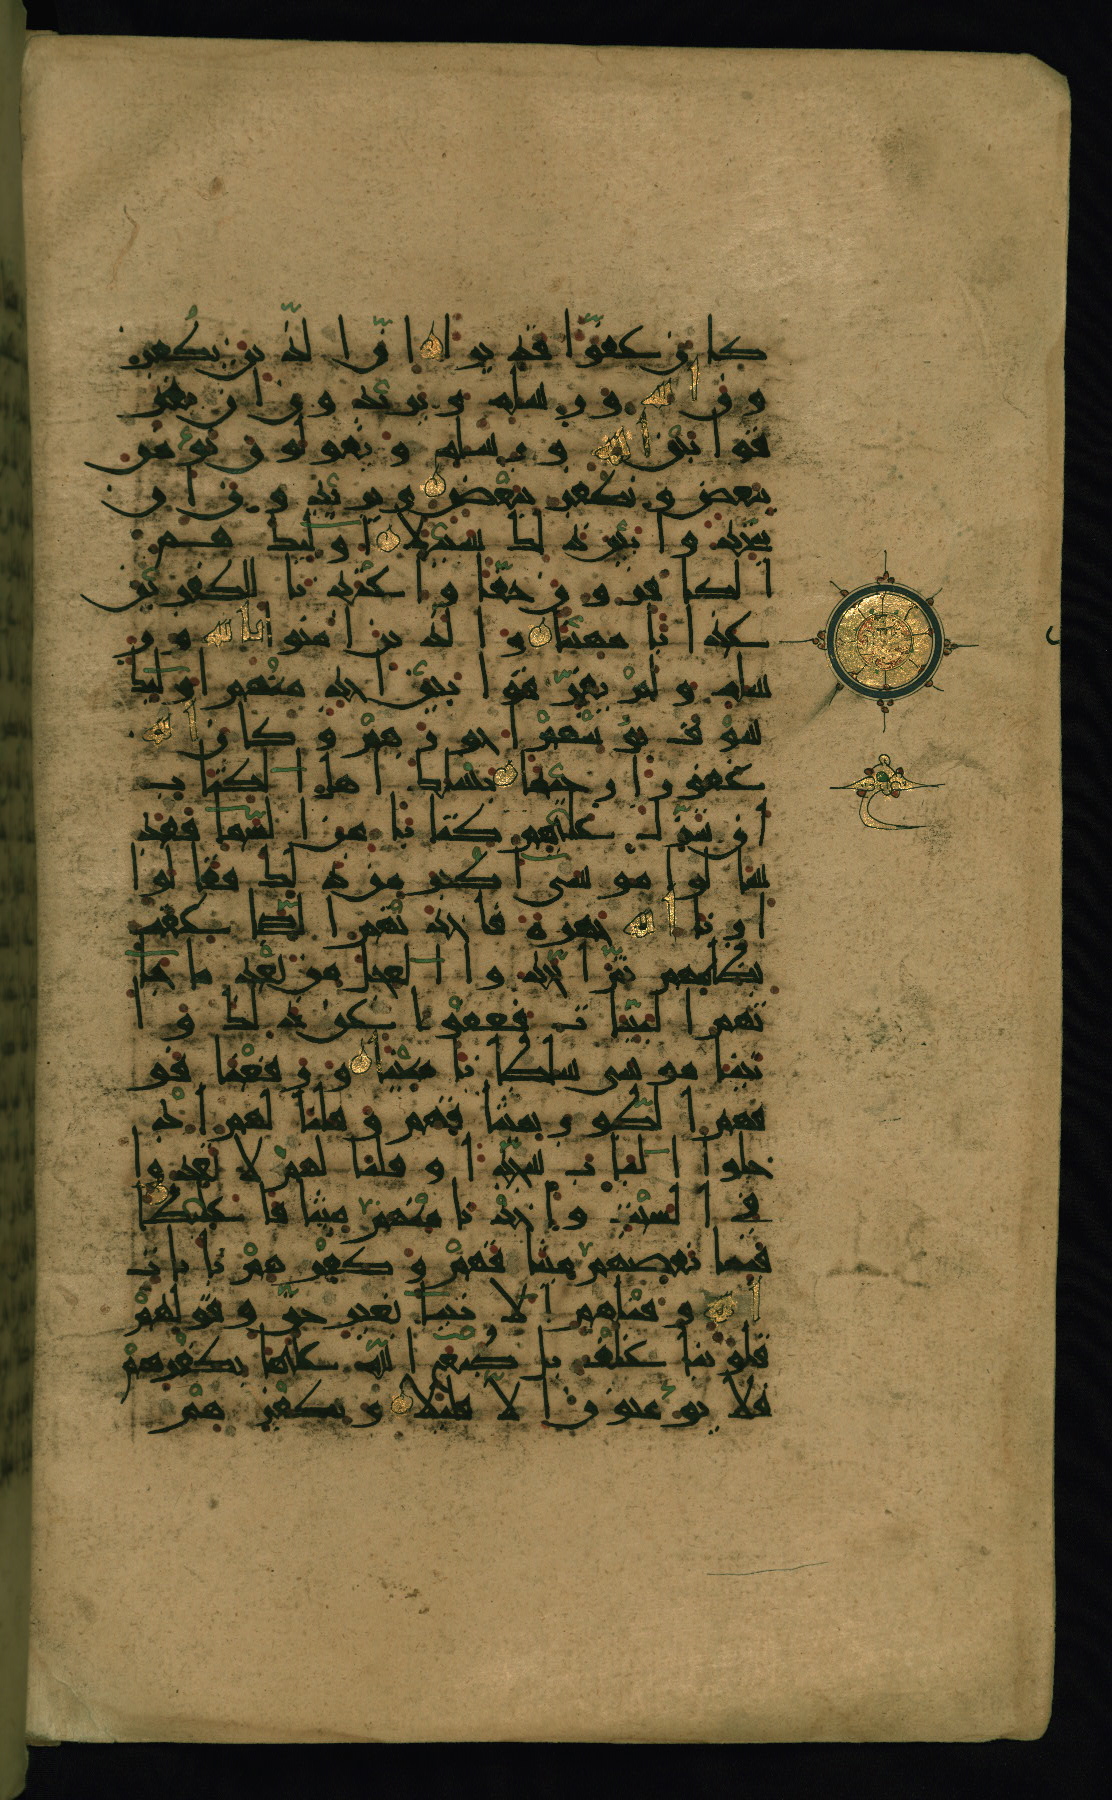 كان عفوا قديرا ان الذين يكفر
ون بالله ورسله ويريدون ان يفر
قوا بين الله ورسله ويقولون نؤمن
ببعض ونكفر ببعض ويريدون ان
يتخذوا بين ذلك سبيلا اولئك هم
الكافرون حقا واعتدنا للكفرين
عذابا مهينا والذين امنوا بالله ور
سله ولم يفرقوا بين احد منهم اولئك
سوف يؤتيهم اجورهم وكان الله
غفورا رحيما يسئلك اهل الكتاب
ان تنزل عليهم كتابا من السما فقد
سالوا موسى اكبر من ذلك فقالوا
ارنا الله جهرة فاخذتهم الصعقة
بظلمهم ثم اتخذوا العجل من بعد ما جا
تهم البينات فعفونا عن ذلك وا
تينا موسى سلطانا مبينا ورفعنا فو
قهم الطور بميثاقهم وقلنا لهم اد
خلوا الباب سجدا وقلنا لهم لا تعدوا
في السبت واخذنا منهم ميثاقا غليظا
فبما نقضهم ميثاقهم وكفرهم بايات
الله وقتلهم الانبيا بغير حق وقولهم
قلوبنا غلف بل طبع الله عليها بكفرهم
فلا يؤمنون الا قليلا وبكفرهم